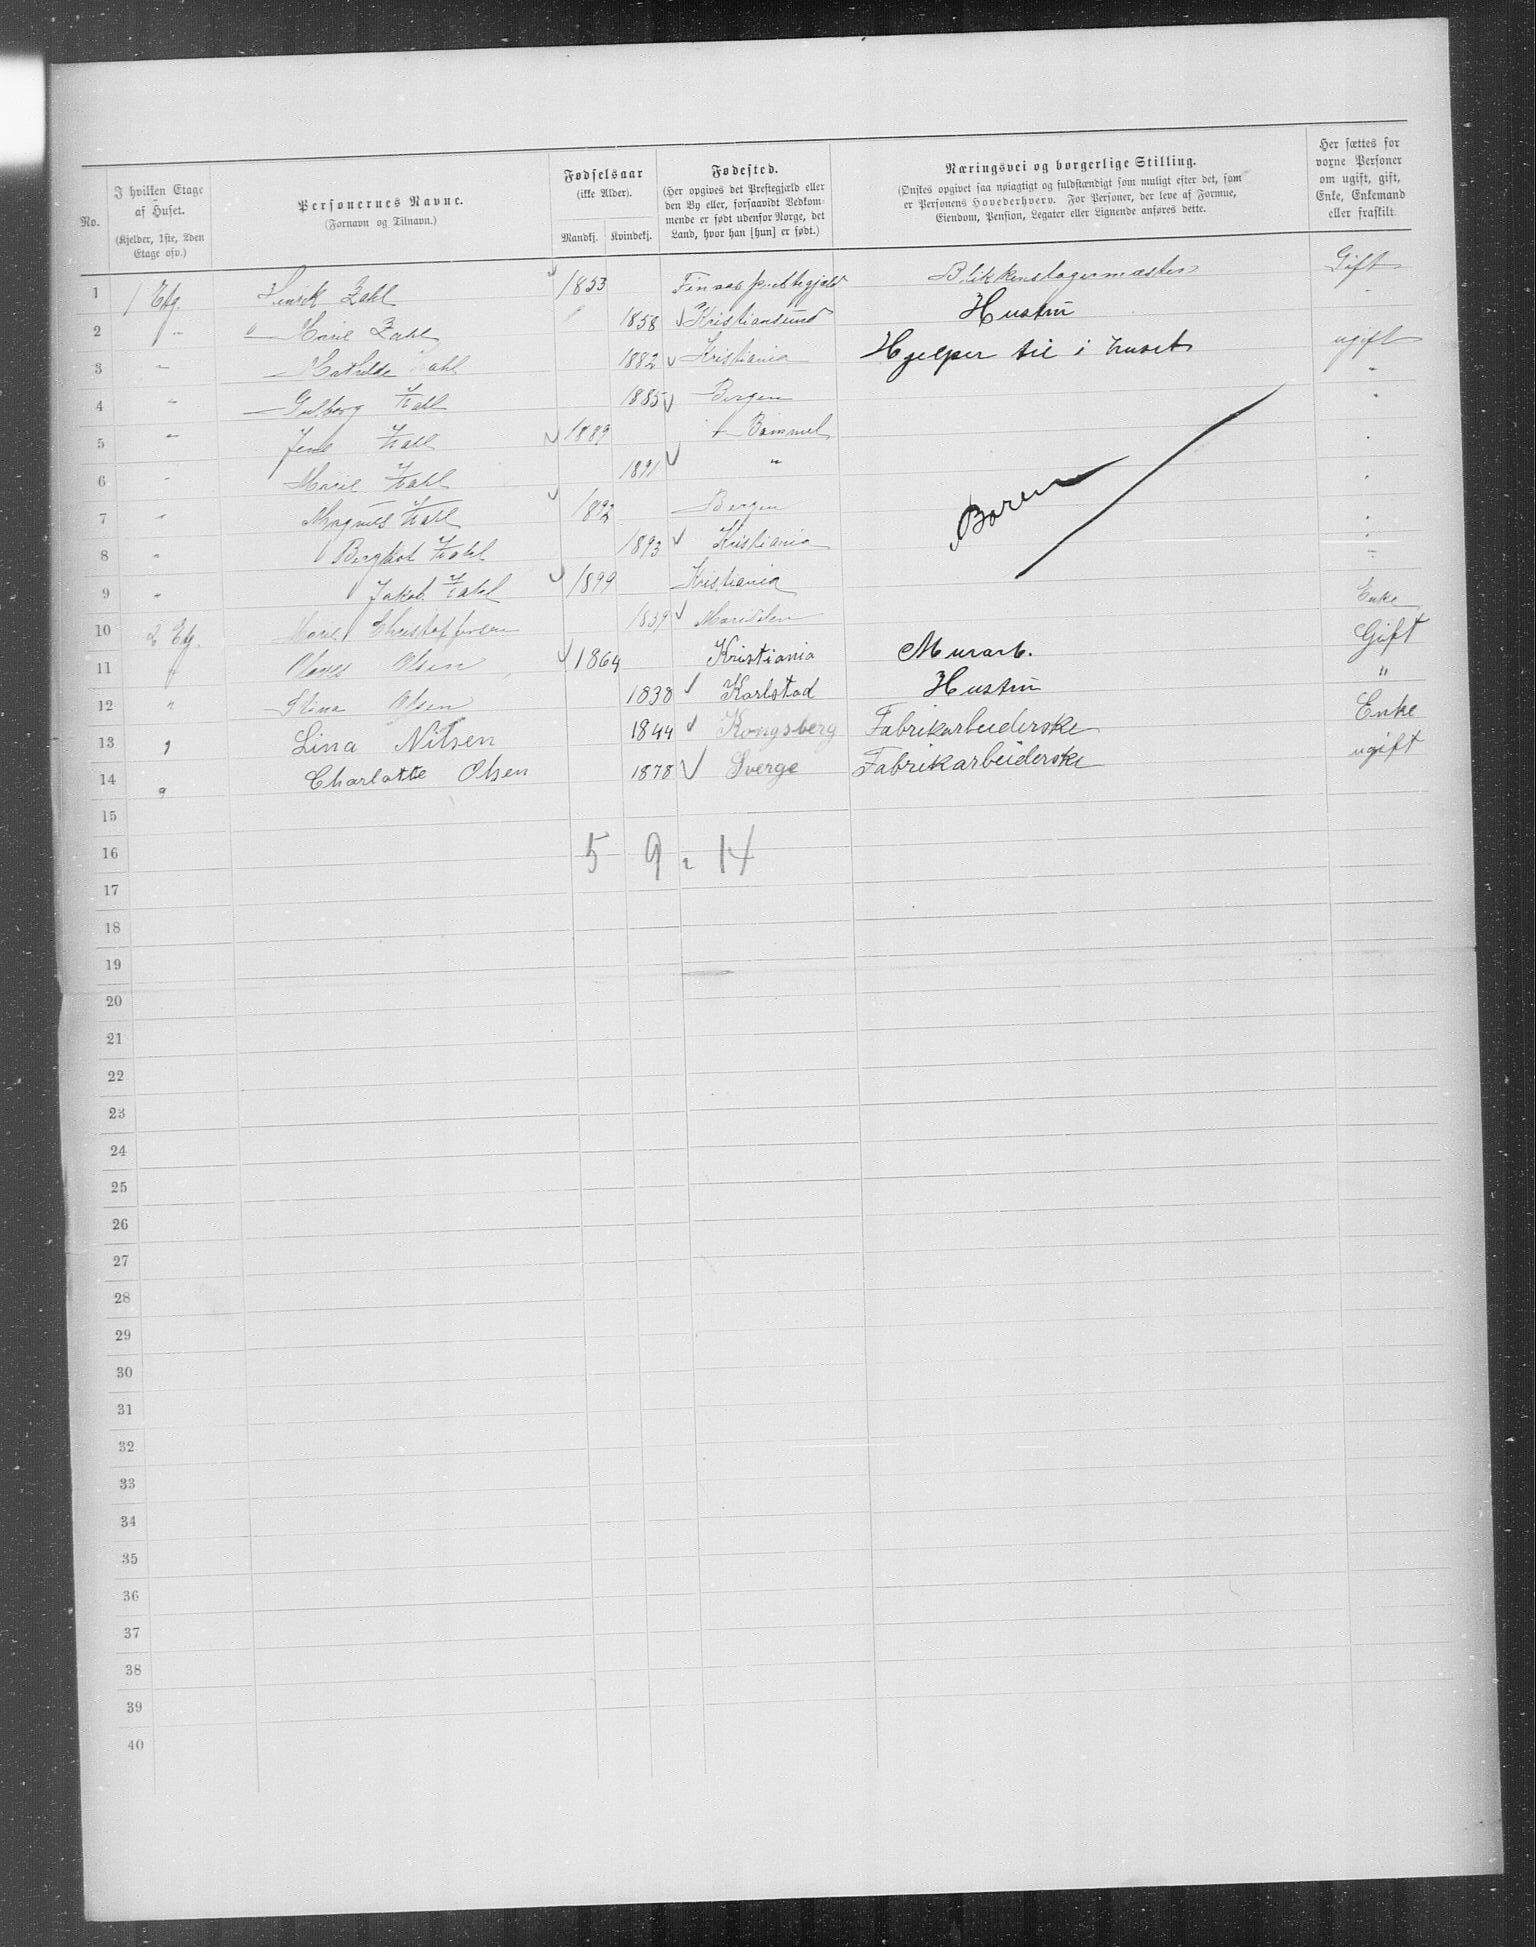 No.
I hvilken Etage af Huset. (Kjelder, 1ste, 2den Etage osv.)
Personernes Navne. (Fornavn og Tilnavn.)
Fødselsaar (ikke Alder). Mandkj. Kvindekj.
Fødested. (Her opgives det Præstegjæld eller den By eller, forsaavidt Vedkommende er født udenfor Norge, det Land, hvor han [hun] er født.)
Næringsvei og borgerlige Stilling. (Ønskes opgivet saa nøiagtigt og fuldstændigt som muligt efter det, som er Personens Hovederhverv. For Personer, der leve af Formue, Eiendom, Pension, Legater eller Lignende anføres dette.)
Her sættes for voxne Personer om ugift, gift, Enke, Enkemand eller fraskilt.
1 1 Etg. Henrik Zahl 1853 Finnaas Blikkenslagermæster Gift
2 " Marie Zahl 1858 Kristiansund Hustru "
3 " Mathilde Zahl 1882 Kristiania Hjelper til i huset ugift
4 " Gulborg Zahl 1885 Bergen "
5 " Jens Zahl 1889 Bømmel "
6 " Marie Zahl 1891 "
7 " Magnus Zahl 1892 Bergen
8 " Bergliot Zahl 1893 Kristiania
9 " Jakob Zahl 1899 Kristiania
Børen
10 2 Etg. Marie Christoffersen 1839 Enke
11 " Olsen 1864 Kristiania Murarb. Gift
12 " Stina Olsen 1838 Karlstad Hustru "
13 " Lina Nilsen 1844 Kongsberg Fabrikarbeiderske Enke
14 " Charlotte Olsen 1878 Sverge Fabrikarbeiderske ugift
15
16 5 9 = 14
17
18
19
20
21
22
23
24
25
26
27
28
29
30
31
32
33
34
35
36
37
38
39
40